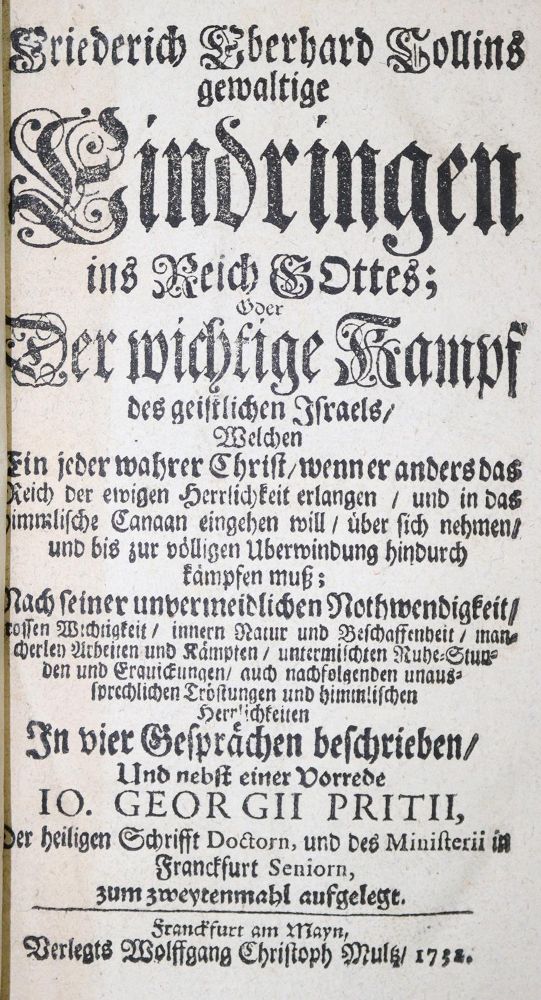 Friederich Eberhard Collins
gewaltige
Eindringen
ins Reich GOttes;
Oder
Der wichtige Kampf
des geistlichen Israels/
Welchen
Ein jeder wahrer Christ/ wenn er anders das
Reich der ewigen Herrlichkeit erlangen / und in das
himmlische Canaan eingehen will / über sich nehmen/
und bis zur völligen Uberwindung hindurch
kämpfen muß;
Nach seiner unvermeidlichen Nothwendigkeit/
grossen Wichtigkeit / innern Natur und Beschaffenheit / man-
cherley Arbeiten und Kämpfen / untermischten Ruhe-Stun-
den und Erquickungen/ auch nachfolgenden unaus-
sprechlichen Tröstungen und himmlischen
Herrlichkeiten
In vier Gesprächen beschrieben/
Und nebst einer Vorrede
IO. GEORGII PRITII,
Der heiligen Schrifft Doctorn, und des Ministerii in
Franckfurt Seniorn,
zum zweytenmahl aufgelegt.
Franckfurt am Mayn,
Verlegts Wolffgang Christoph Multz/